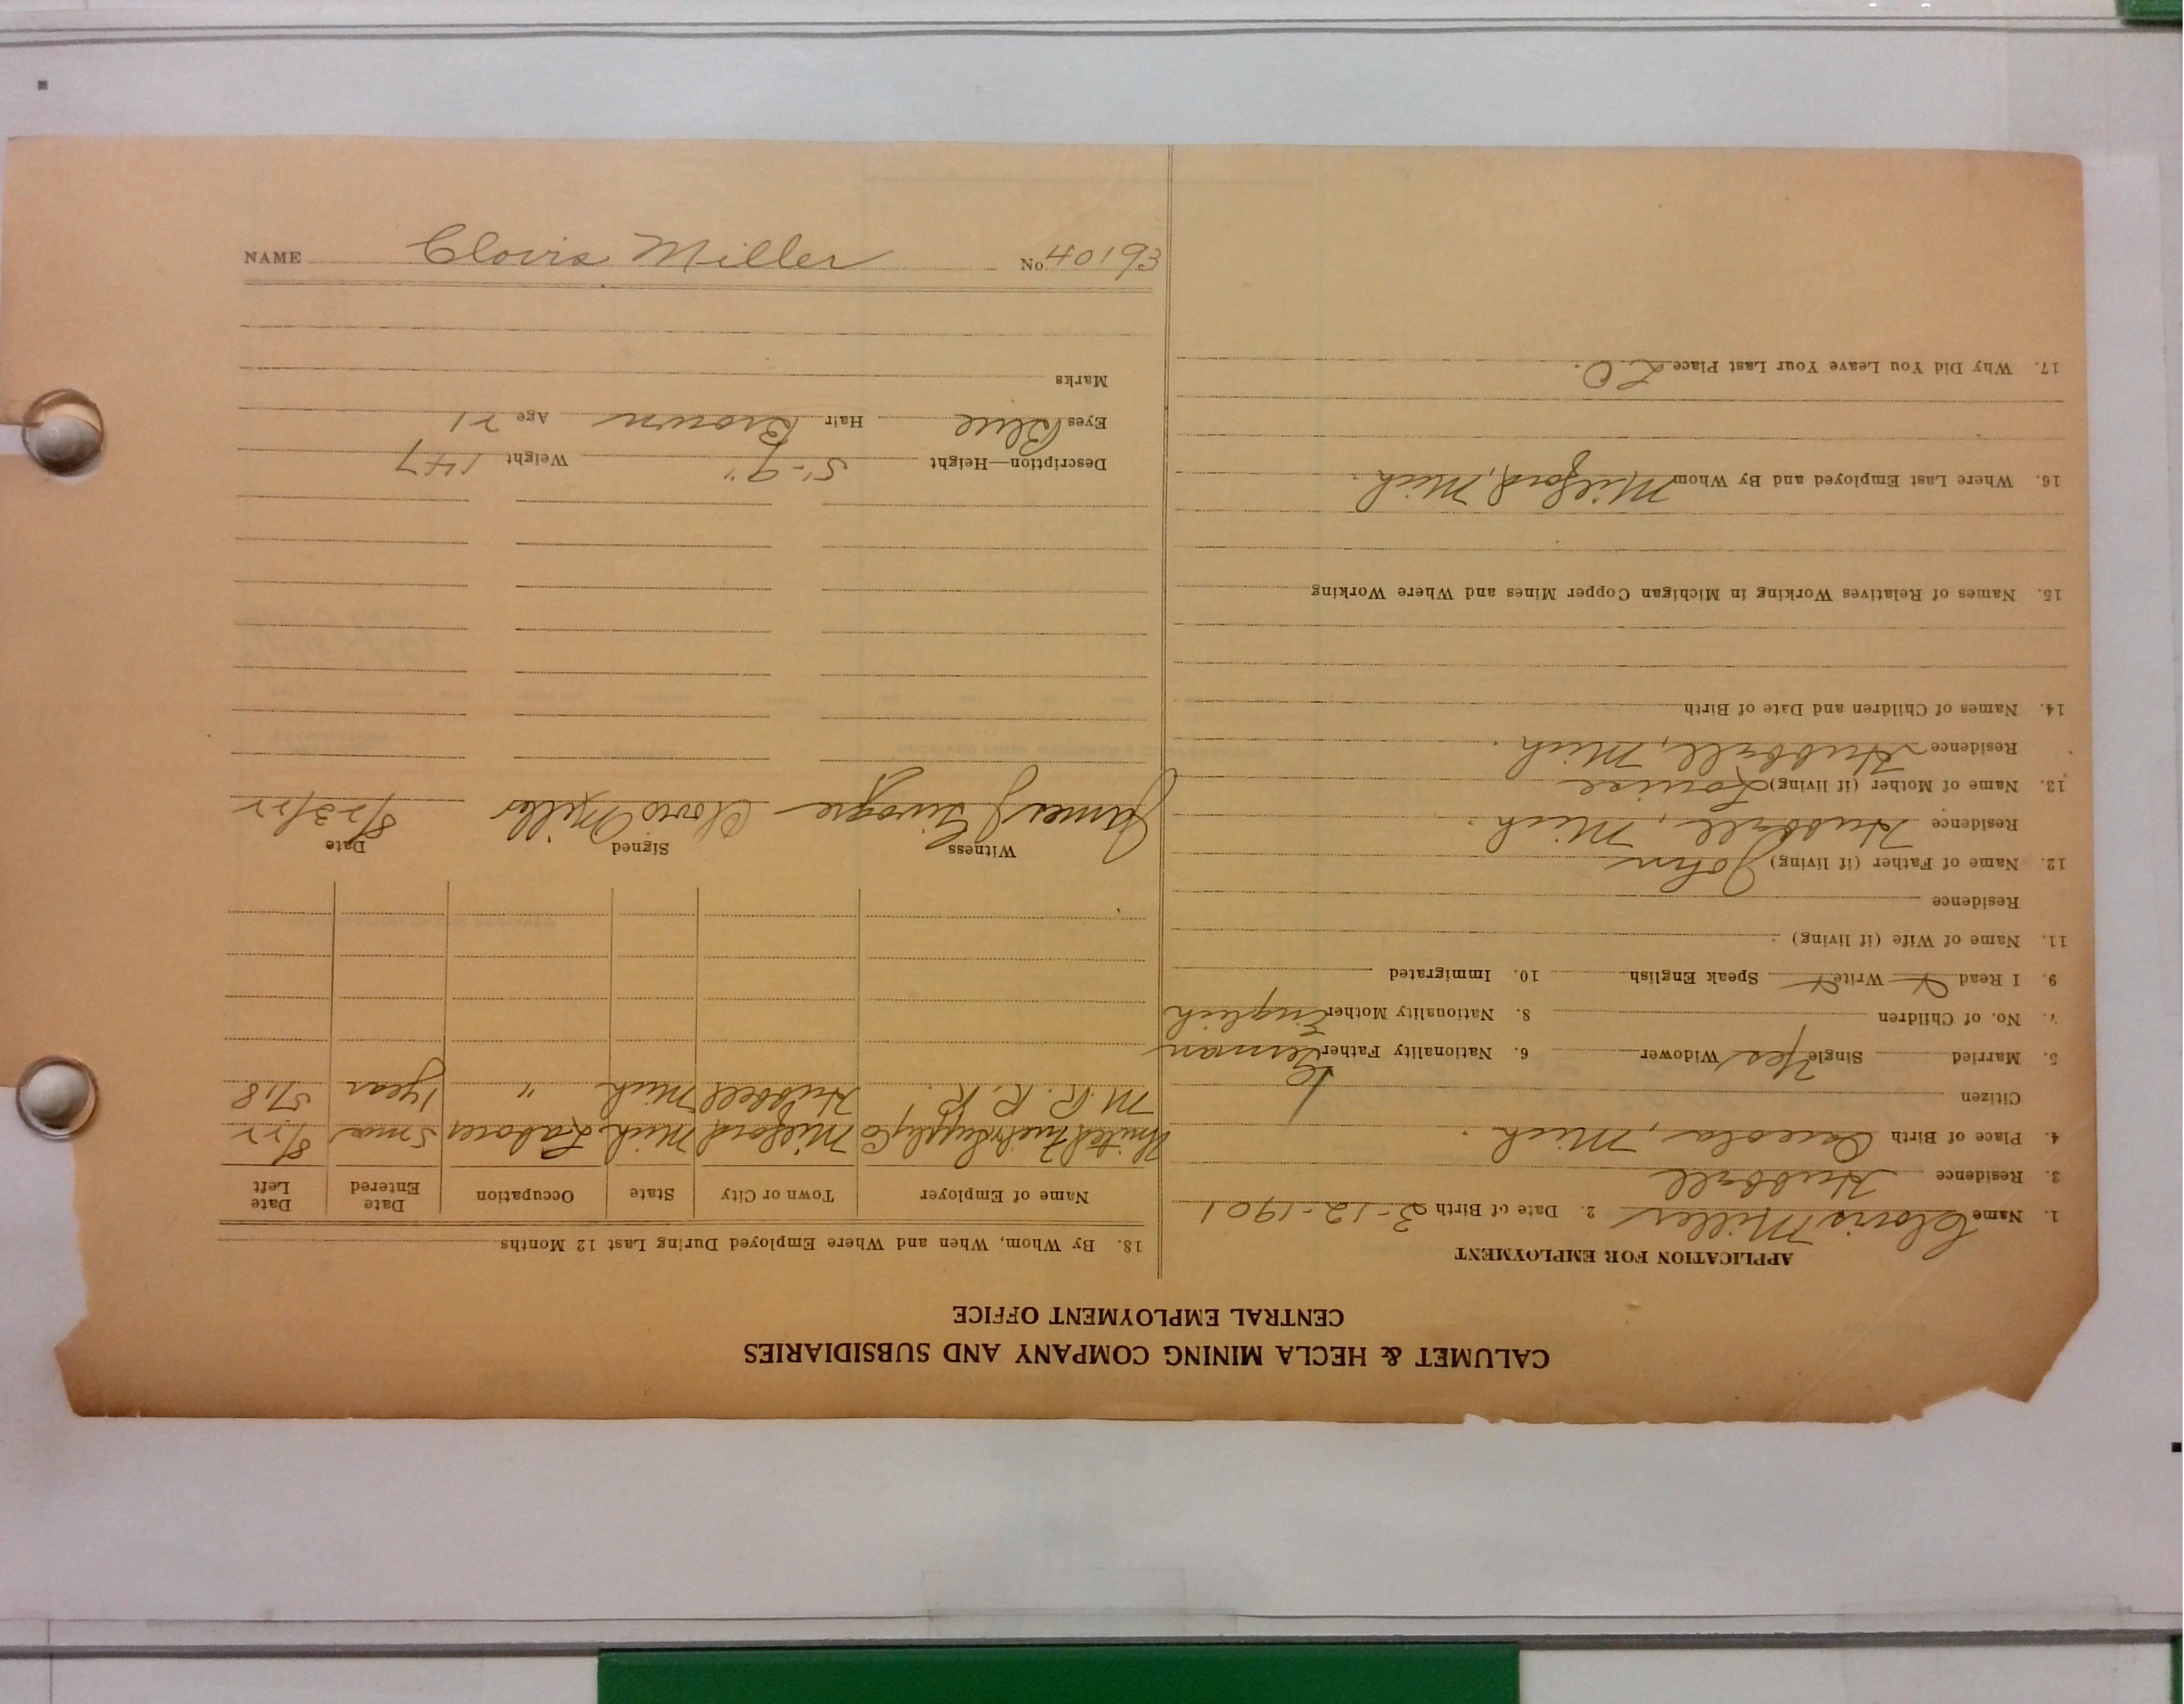 CALUMET & HECLA MINING COMPANY AND SUBSIDIARIES
CENTRAL EMPLOYMENT OFFICE
APPLICATION FOR EMPLOYMENT
1. Name Clovis Miller 2. Date of Birth 3-12-1901
3. Residence Hubbell
4. Place of Birth Osceola, Mich.
Citizen
5. Married Single Yes Widower 6. Nationality Father German
7. No. of Children 8. Nationality Mother English
9. I Read Write Speak English 10. Immigrated
11. Name of Wife (if living)
Residence
12. Name of Father (if living) John
Residence Hubbell, Mich.
13. Name of Mother (if living) Louise
Residence Hubbell, Mich.
14. Names of Children and Date of Birth
15. Names of Relatives Working in Michigan Copper Mines and Where Working
16. Where Last Employed and By Whom Milford, Mich.
17. Why Did You Leave Your Last Place L O.
18. By Whom, When and Where Employed During Last 12 Months
Name of Employer Town or City State Occupation Date Entered Date Left
United Fuel & Supply Co Milford Mich. Laborer 5 mos 8/22
M. R. R. R. Hubbell Mich " 1 year
Witness Signed Date
James Clovis Miller 8/23/22
Description—Height 5'-9" Weight 147
Eyes Blue Hair Brown Age 21
Marks
NAME Clovis Miller No. 40193